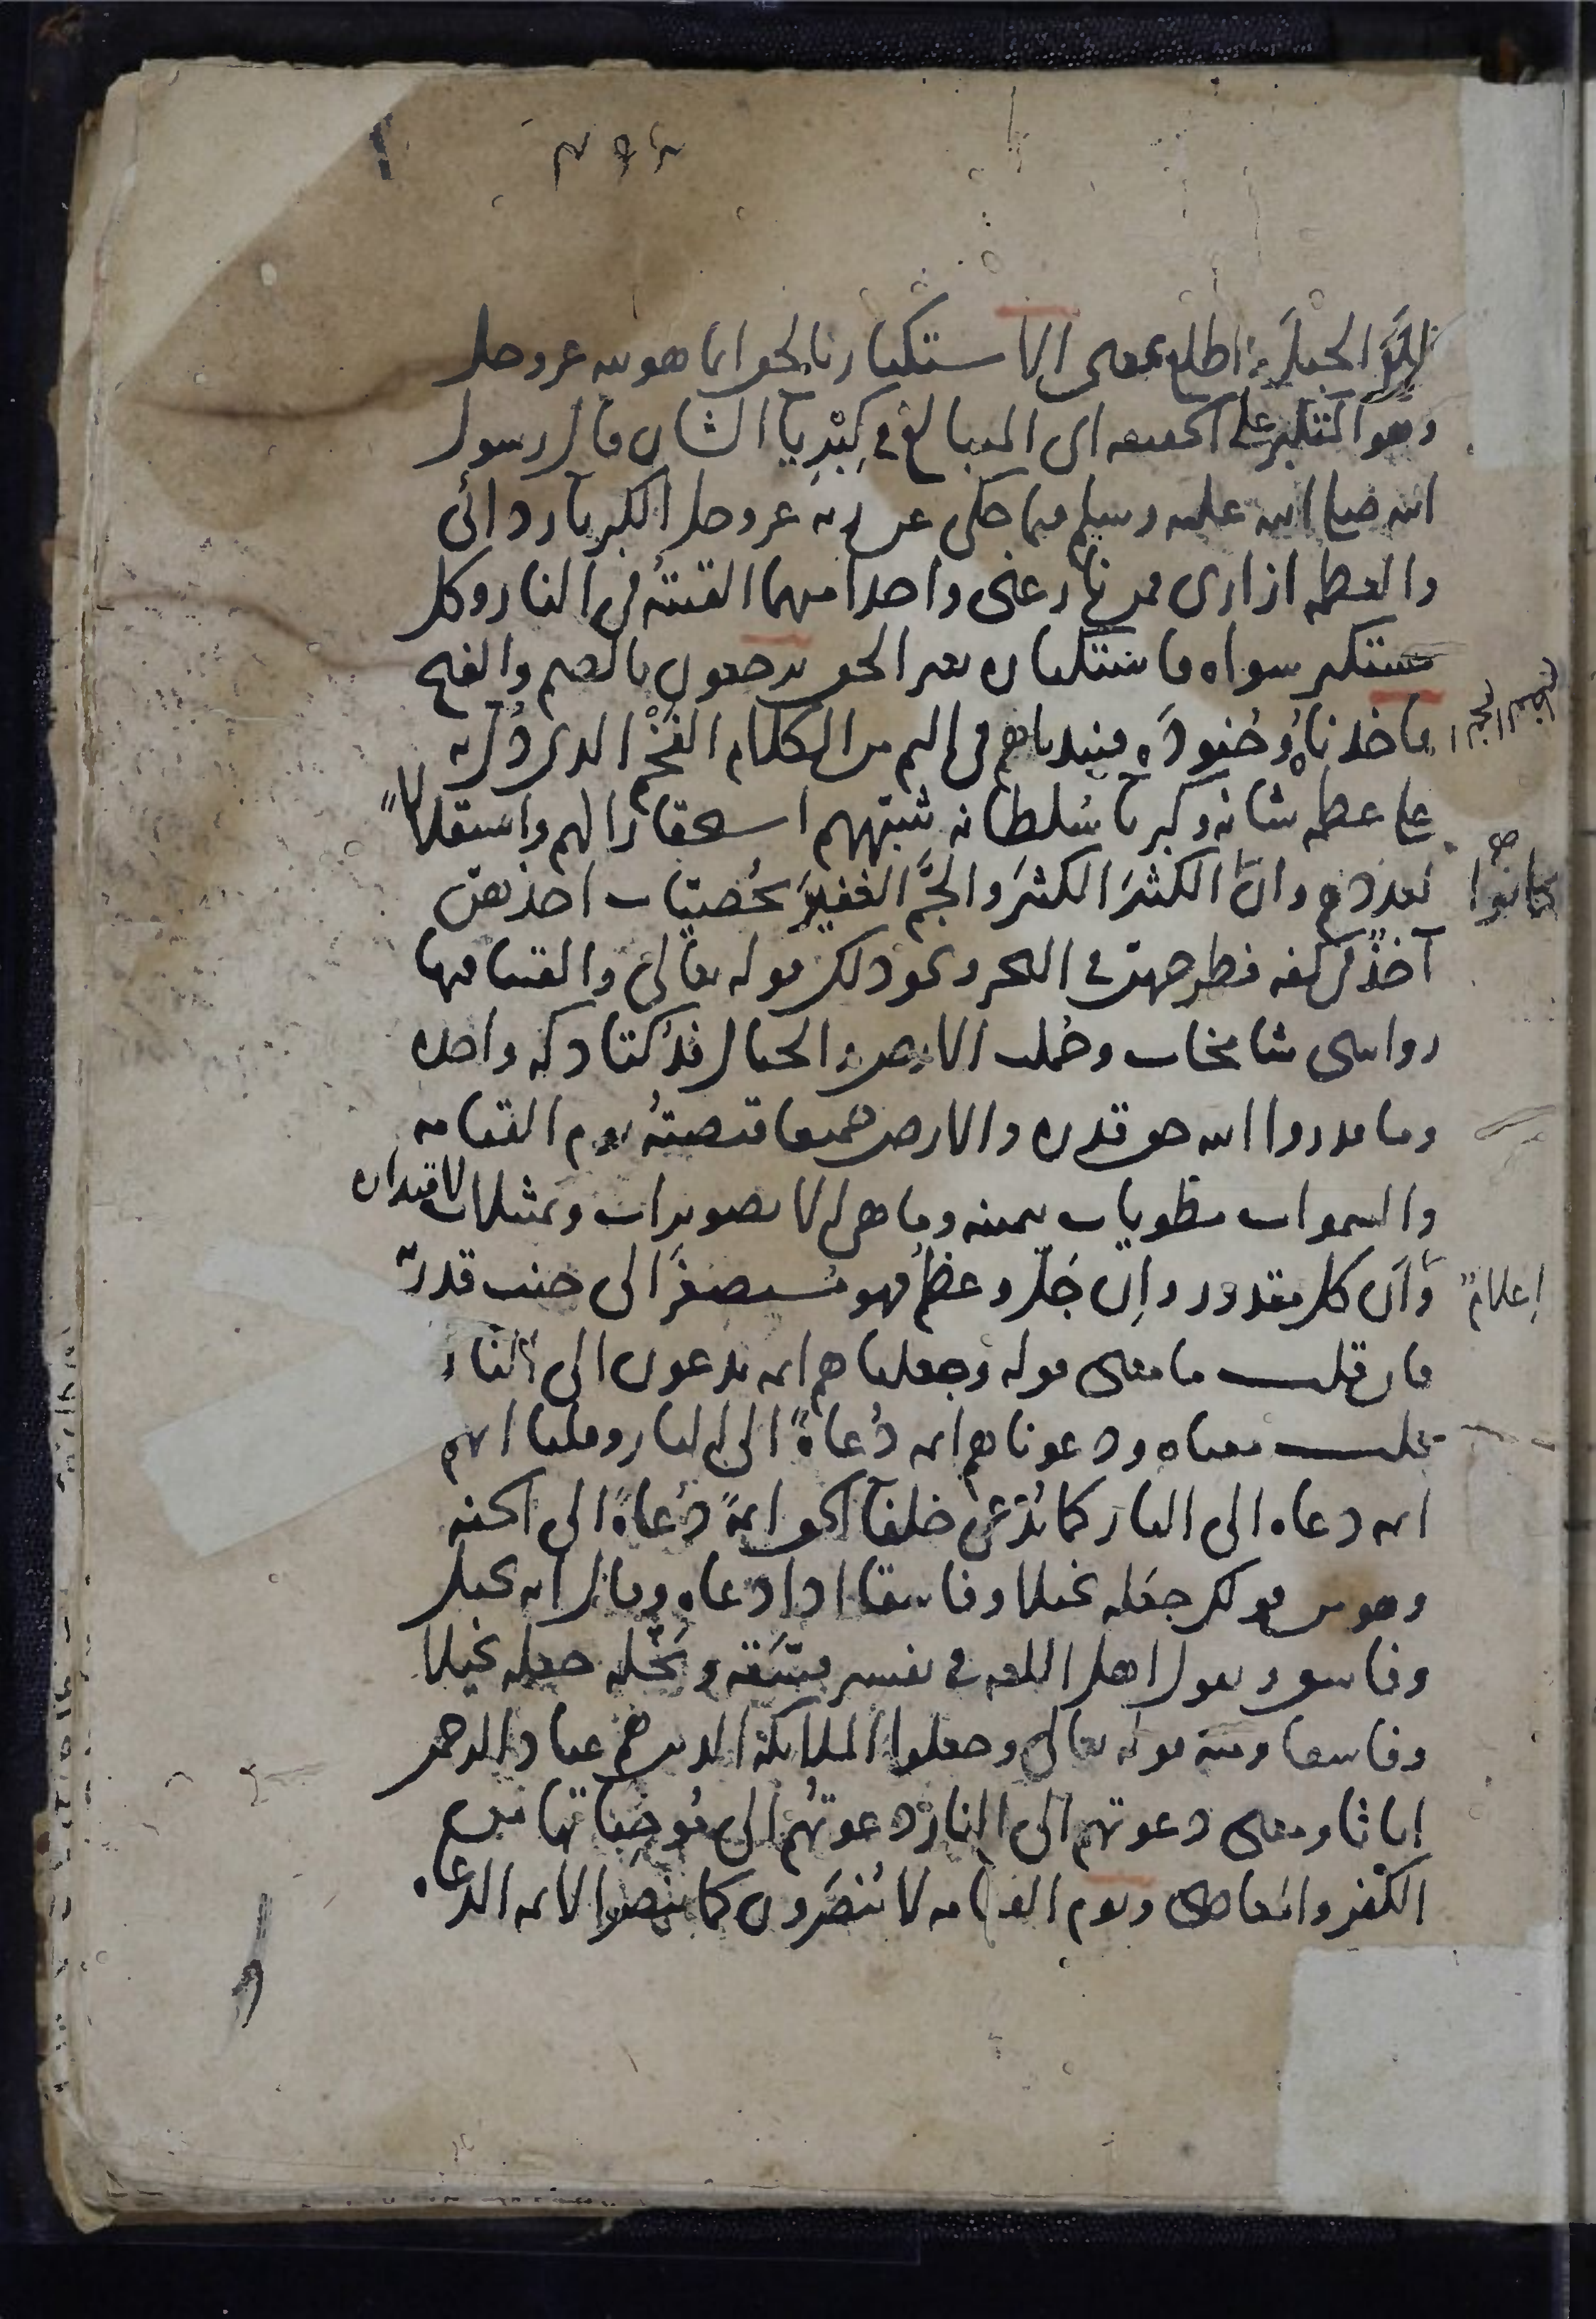 الجبل واطلع بمعنى الاستكبار بالحق انما هو لله عز وجل
وهو المتكبر على الحقيقه اى المبالغ فى كبريآ الشان قال رسول
الله صلى الله عليه وسلم فيما حكى عن ربه عز وجل الكبريآ ردائى
والعظمه ازارى فمن نازعنى واحدا منهما القيته فى النار وكل
مستكبر سواه فاستكباره بغير الحق يرجعون بالضم والفتح
فاخذناه وجنوده فنبذناهم فى اليم من الكلام الفخم الذى دل به
على عظمة شانه وكبريآ سلطانه شبههم استحقارا لهم واستقلالا
لعددهم وان كانوا الكثر الكثير والجم الغفير بحصيات اخذهن
آخذ فى كفه فطرحهن فى البحر ونحو ذلك قوله تعالى والقينا فيها
رواسى شامخات وحملت الارض والجبال فدكتا دكة واحده
وما قدروا الله حق قدره والارض جميعا قبضته يوم القيامه
والسموات مطويات بيمينه وما هى الا تصويرات وتمثيلات لاقتداره
اعلام وأن كل مقدور وان جل وعظم فهو مستصغر الى جنب قدرته
فان قلت ما معنى قوله وجعلناهم ايمه يدعون الى النار
قلت معناه ودعوناهم ايمه دعاة الى النار وقلنا انهم
ايمه دعاه الى النار كما يدعى خلفآ الحق ايمة دعاة الى الجنه
وهو من قولك جعله بخيلا وفاسقا اذا دعاه وقال انه بخيل
وفاسق ويقول اهل اللغه فى تفسير فسقه وبخله جعله بخيلا
وفاسقا ومنه قوله تعالى وجعلوا الملايكة الذين هم عباد الرحمن
اناثا ومعنى دعوتهم الى النار دعوتهم الى موجباتها من
الكفر والمعاصى ويوم القيامه لا ينصرون كما ينصر الايمه الدعاه